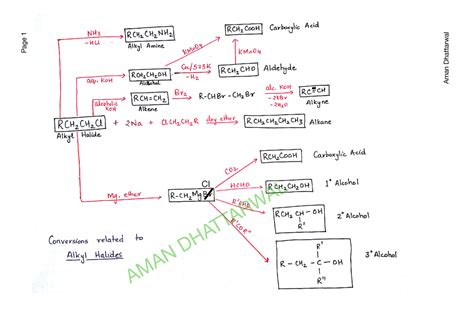 Page 1
Aman Dhattarwal
NH₃
-HCl
RCH₂CH₂NH₂
Alkyl Amine
RCH₂COOH Carboxylic Acid
KMnO₄
KMnO₄
aq. KOH
RCH₂CH₂OH
Alcohol
Cu/573K
-H₂
RCH₂CHO Aldehyde
alcoholic
KOH
RCH=CH₂
Alkene
Br₂
R-CHBr-CH₂Br
alc. KOH
-2KBr
-2H₂O
Alkyne
RCH₂CH₂Cl + 2Na + ClCH₂CH₂R dry ether RCH₂CH₂CH₂CH₃ Alkane
Alkyl Halide
Mg, ether
Cl
R-CH₂MgBr
CO₂
RCH₂COOH Carboxylic Acid
HCHO
RCH₂CH₂OH 1° Alcohol
R'CHO
RCH₂CH-OH 2° Alcohol
R'
R'COR"
R'
R-CH₂-C-OH 3° Alcohol
R"
Conversions related to
Alkyl Halides
AMAN DHATTARWAL